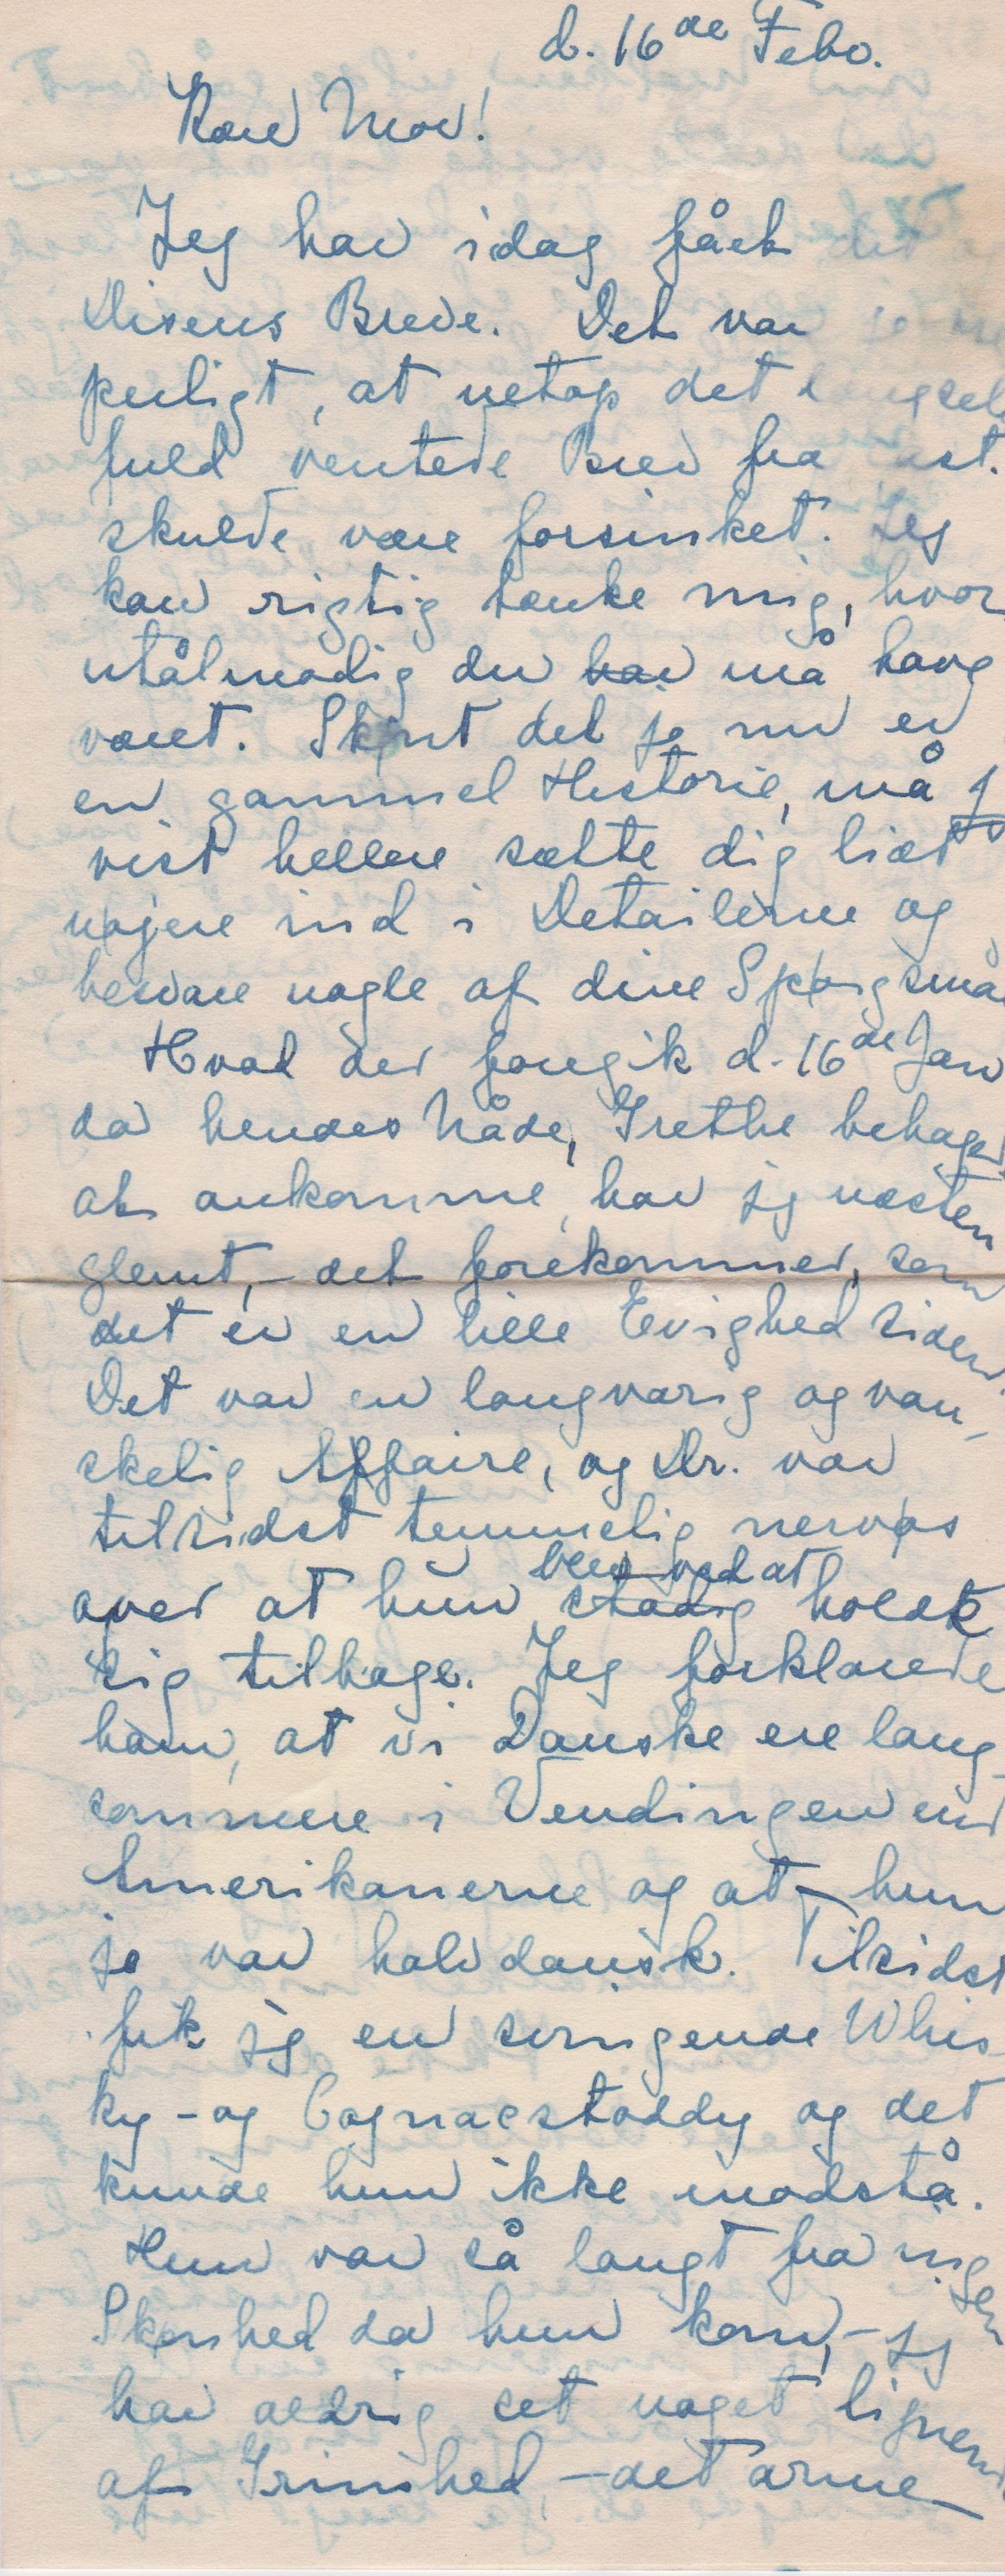 d. 16de Febr.
Kære Mor!
Jeg har idag fået
Disens Breve. Det var
peiligt, at netop det
fuld ventede Brev fra
skulde være forsinket. Jeg
kan rigtig tænke mig, hvor
utålmodig du har må have
været. Skjønt det jo nu er
en gammel Historie, må j
vist hellere sætte dig liæt
nøjere ind i Detailerne og
besvare nogle af dine Spørgsmå
Hvad der foregik d. 16de Jan
da hendes Nåde, Grethe behage
at ankomme, har jeg næsten
glemt, - det forekommer, som
det er en lille Evighed siden.
Det var en langvarig og van-
skelig Affaire, og Dr. var
tilsidst temmelig nervøs
over at hun stadig blev ved at holdt
sig tilbage. Jeg forklarede
ham, at vi Danske ere lang-
sommere i Vendingen end
Amerikanerne og at hun
jo var halvdansk. Tilsidst
fik jeg en svingende Whis-
ky- og Cognacstoddy og det
kunde hun ikke modstå.
Hun var så langt fra ingen
Skønhed da hun kom, - jeg
har aldrig set noget lignend
af Grimhed - det arme